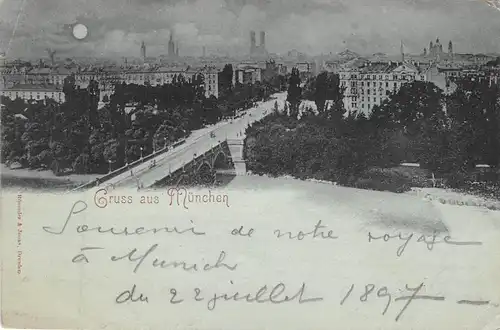 Gruss aus München
Souvenir de notre voyage
à Munich
du 22 juillet 1897